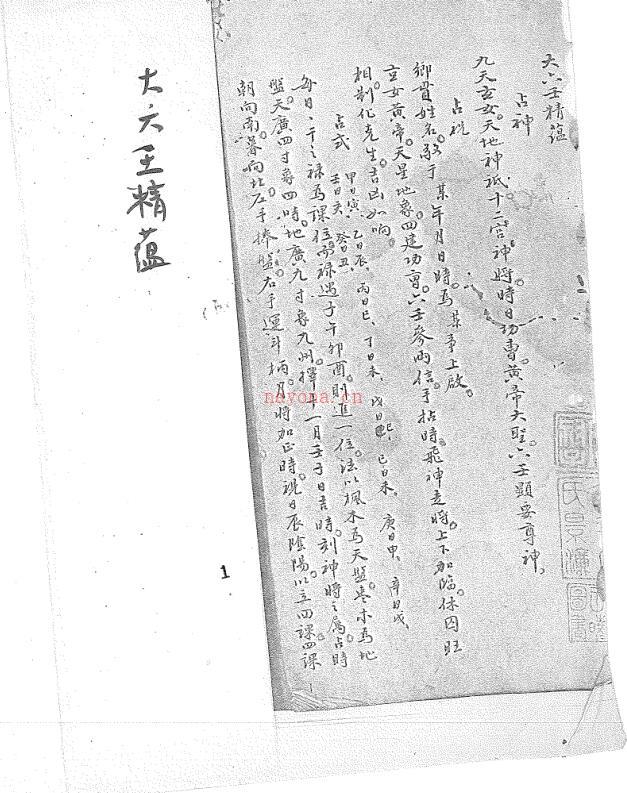 大六壬精蕴
占神
九天玄女。天地神祇十二宫神將時日功曹。黄帝大聖。六壬顯要尊神。
占祝
鄉貫姓名。敬于某年月日時爲某事上啟。
玄女黄帝。天星地象。四建功曹。六壬參両。信手拈時。飛神走將。上下加臨。休囚旺
相制化克生。吉凶如响。
占式
甲日寅、乙日辰、丙日巳、丁日未、戊日巳、己日未、庚日申、辛日戌、
壬日亥、癸日丑、
每日、干之禄爲課位而禄遇子午卯酉。則進一位。法以楓木爲天盤棗木爲地
盤。天廣四寸象四時。地廣九寸象九州。擇十一月壬子日吉時。刻神將之属占時
朝向南。暮向北。左手捧盤。右手運斗柄。月將加正時。視日辰陰陽以立四課。四課
大六壬精蕴
1
nayona.cn